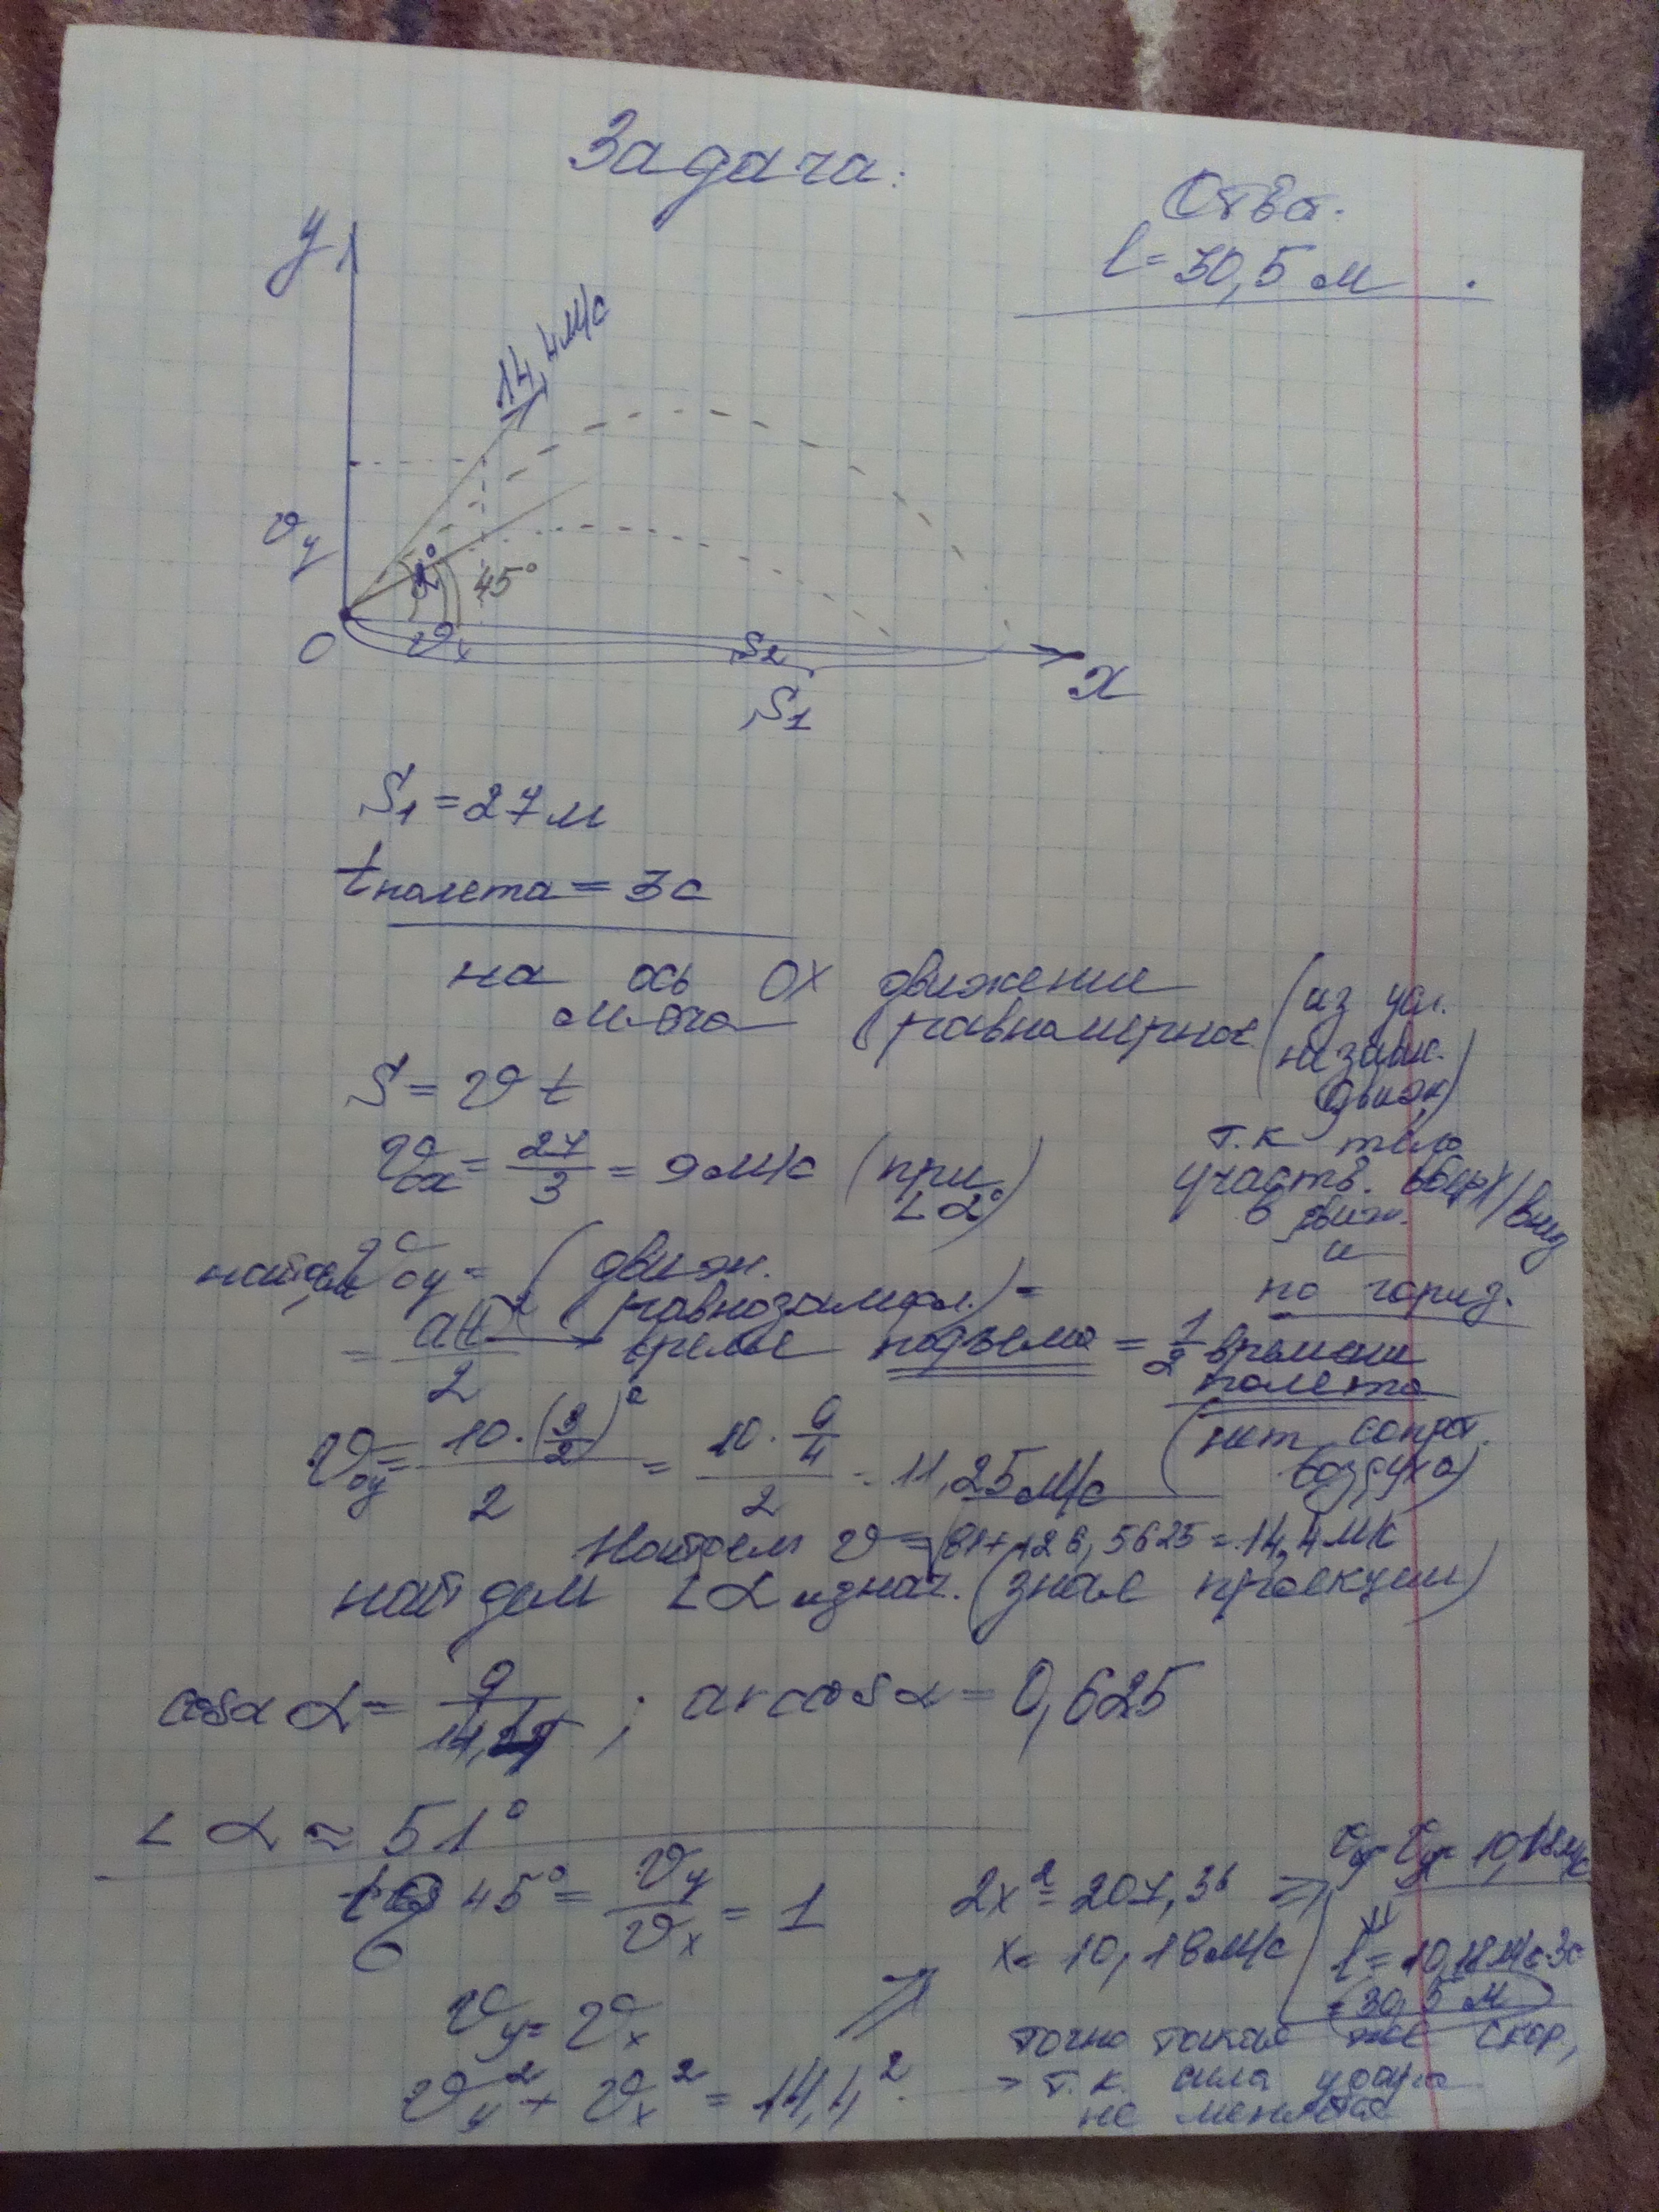 Задача.
Ответ.
l = 30,5 м.
y
14,4 м/с
υy
α°
45°
O
υx
S2
S1
X
S1 = 27 м
tполета = 3с
на ось OX движение
мяча равномерное
(из усл.
незамк.
движ)
S = υ t
υ0x = 27/3 = 9 м/с (при ∠α°)
т.к тело
участв. вверх/вниз
в движ.
и
по гориз.
найдем υ0y = (движ. равнозамедл.) =
= at²/2 → время подъема = 1/2 времени
полета
(нет сопрот.
воздуха)
υ0y = 10·(3/2)²/2 = 10·9/4/2 = 11,25 м/с
Найдем υ = √81+126,5625 = 14,4 м/с
найдем ∠α изнач. (зная проекции)
cosα α = 9/14,4 ; arccos α = 0,625
∠ α ≈ 51°
tg 45° = υy/υx = 1
υy = υx
υy² + υx² = 14,4²
2x² = 207,36 ⇒
x = 10,18 м/с
υy = υx = 10,18 м/с
l = 10,18 м/с·3с
= 30,5 м
точно такая же скор,
т.к. сила удара
не меняется